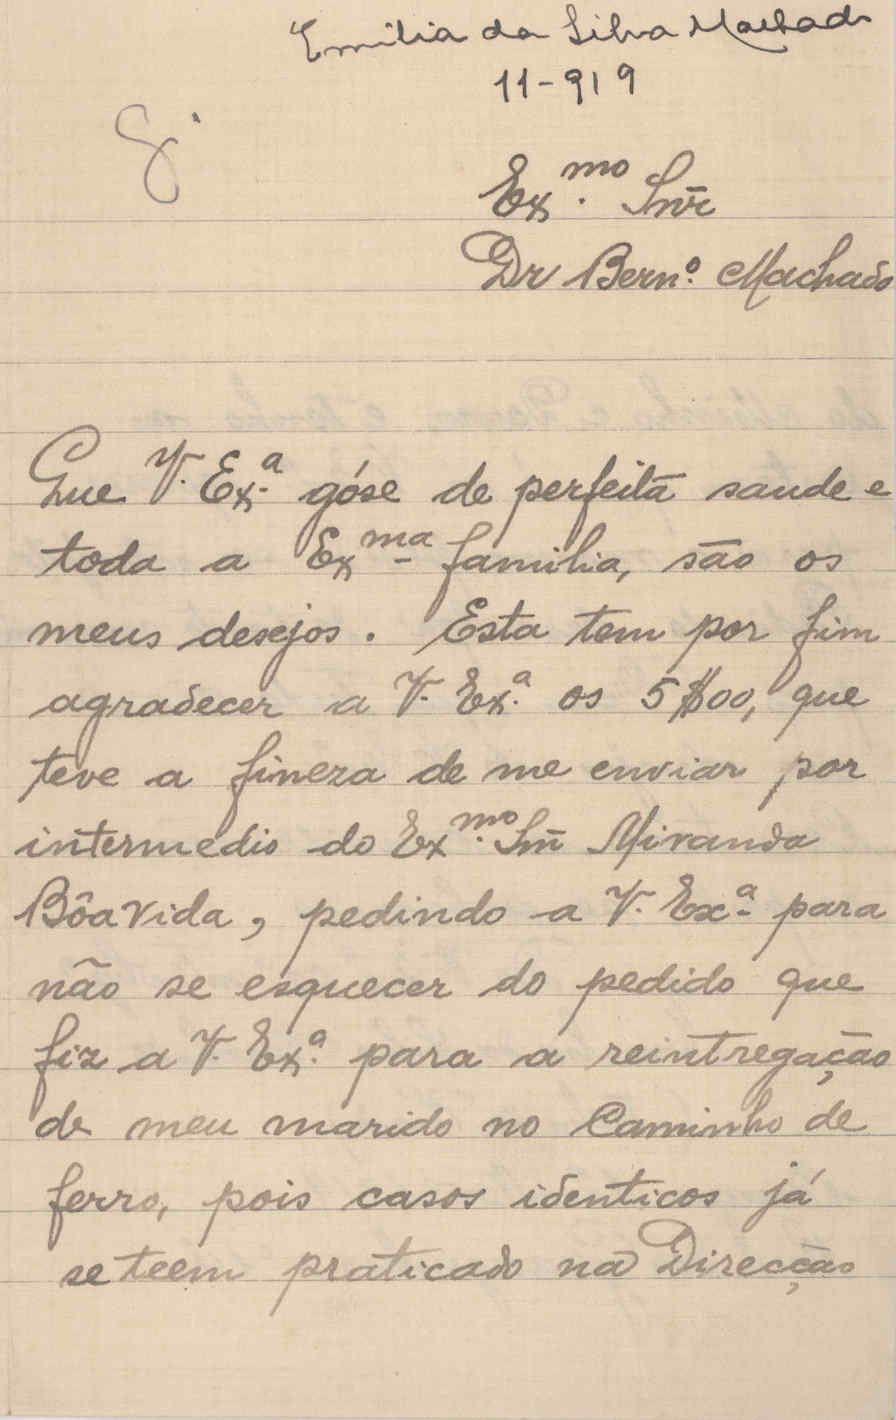 Emilia da Silva Machado
11-919
Ex.mo Snr
Dr Bern.º Machado
Que V. Ex.ª góse de perfeita saude e
toda a Exma familia, são os
meus desejos. Esta tem por fim
agradecer a V. Ex.ª os 5$00, que
teve a fineza de me enviar por
intermedio do Ex.mo Snr Miranda
Bôavida, pedindo a V. Exª para
não se esquecer do pedido que
fiz a V. Ex.ª para a reintregação
de meu marido no Caminho de
ferro, pois casos identicos já
se teem praticado na Direcção